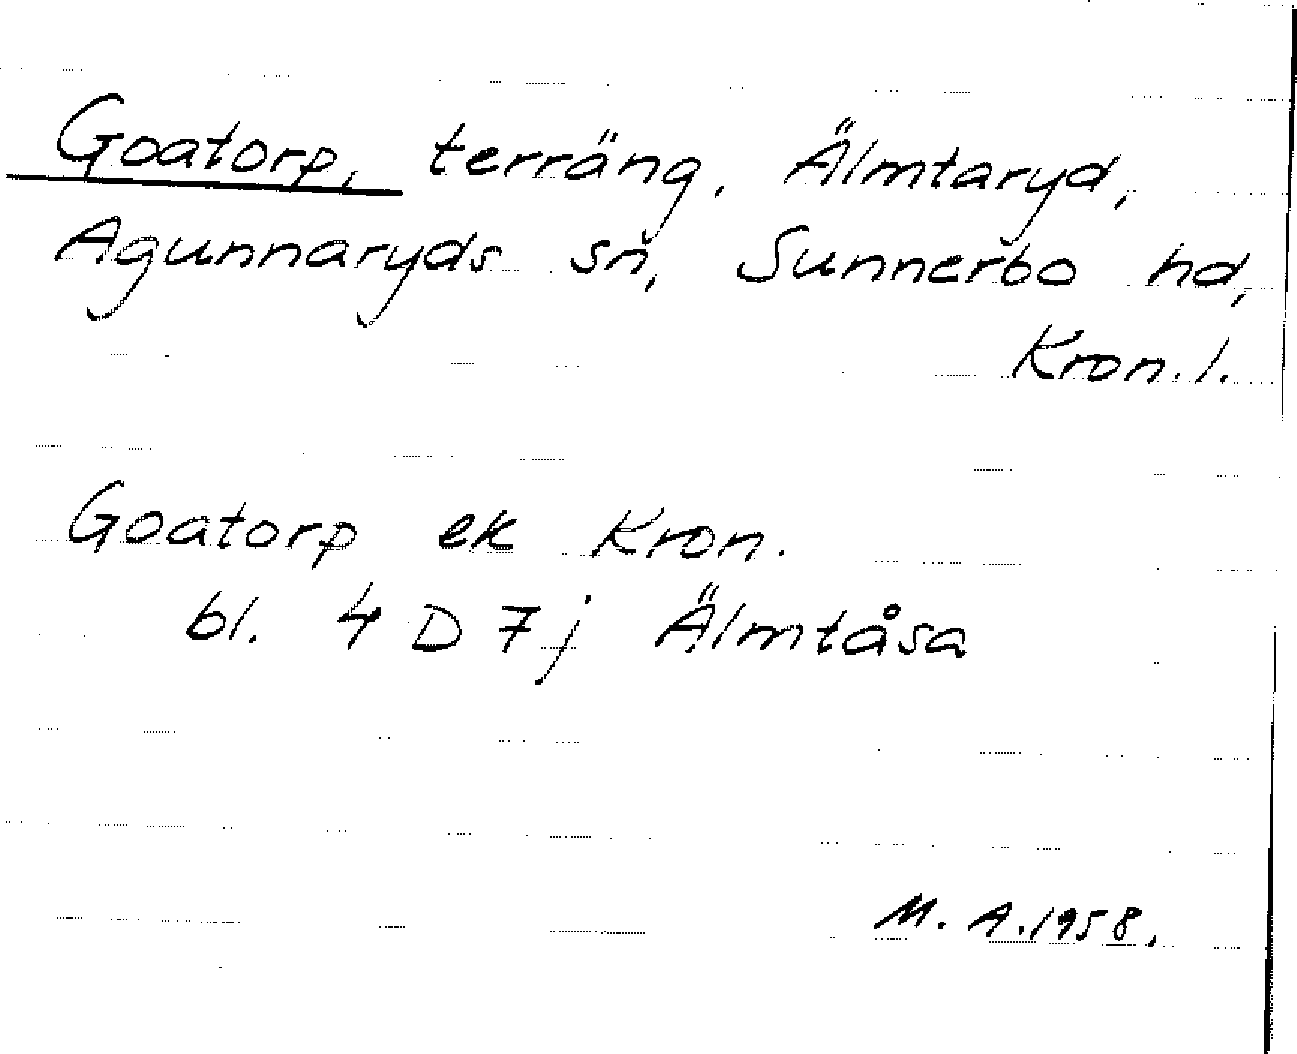 Goatorp, terräng, Älmtaryd,
Agunnaryds sn, Sunnerbo hd,
Kron. l.
Goatorp ek Kron.
bl. 4 D 7 j Älmtåsa
M. A. 1958.